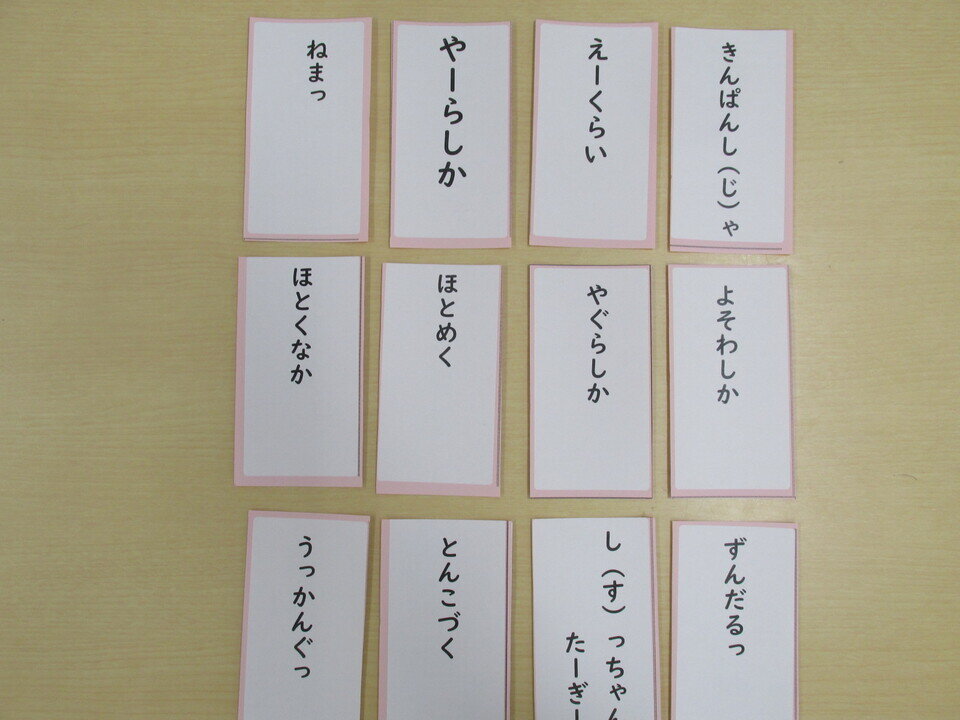 きんぱんし(じ)ゃ
えーくらい
やーらしか
ねまっ
よそわしか
やぐらしか
ほとめく
ほとくなか
ずんだるっ
し(す)っちゃん
たーぎー
とんこづく
うっかんぐっ